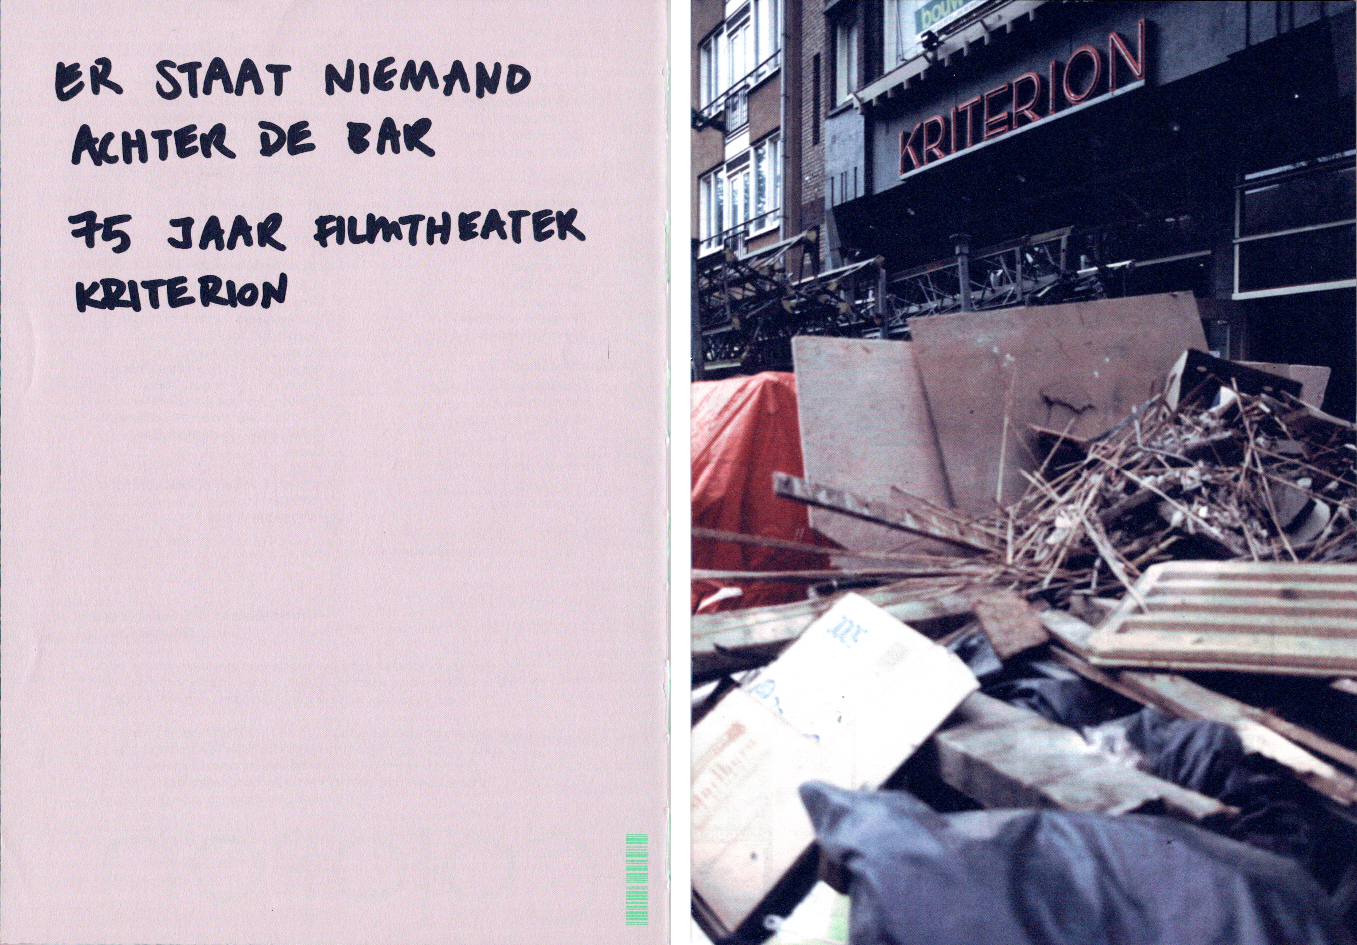 ER STAAT NIEMAND
ACHTER DE BAR
75 JAAR FILMTHEATER
KRITERION
bouw
KRITERION